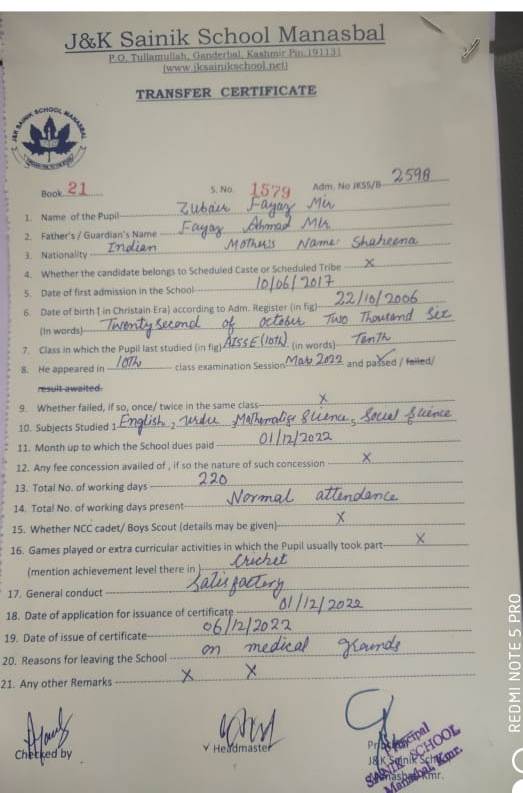 J&K Sainik School Manasbal
P.O. Tullamullah, Ganderbal, Kashmir Pin.191131
(www.jksainikschool.net)
TRANSFER CERTIFICATE
J&K SAINIK SCHOOL MANASBAL
Book 21 S. No. 1579 Adm. No JKSS/B 2598
1. Name of the Pupil Zubair Fayaz Mir
2. Father's / Guardian's Name Fayaz Ahmad Mir
3. Nationality Indian Mother's Name: Shaheena
4. Whether the candidate belongs to Scheduled Caste or Scheduled Tribe X
5. Date of first admission in the School 10/06/2017
6. Date of birth ( in Christain Era) according to Adm. Register (in fig) 22/10/2006
(In words) Twenty second of october Two Thousand Six
7. Class in which the Pupil last studied (in fig) AISSE (10th) (in words) Tenth
8. He appeared in 10th class examination Session Mar 2022 and passed / failed/
result awaited.
9. Whether failed, if so, once/ twice in the same class X
10. Subjects Studied : English, Urdu, Mathematics Science, Social Science
11. Month up to which the School dues paid 01/12/2022
12. Any fee concession availed of , if so the nature of such concession X
13. Total No. of working days 220
14. Total No. of working days present Normal attendence
15. Whether NCC cadet/ Boys Scout (details may be given) X
16. Games played or extra curricular activities in which the Pupil usually took part X
(mention achievement level there in ) Cricket
17. General conduct Satisfactory
18. Date of application for issuance of certificate 01/12/2022
19. Date of issue of certificate 06/12/2022
20. Reasons for leaving the School on medical grounds
21. Any other Remarks X X
Checked by Headmaster Principal
J&K Sainik School
Manasbal Kmr.
Principal
SAINIK SCHOOL
Manasbal, Kmr.
REDMI NOTE 5 PRO